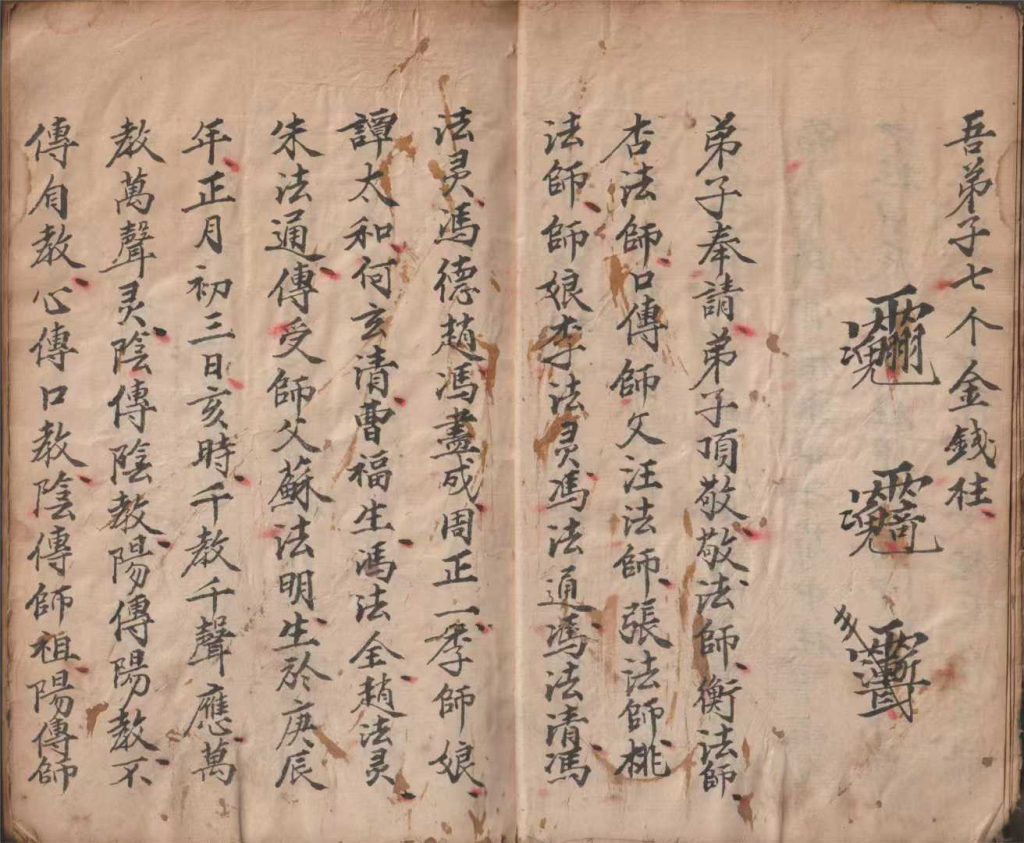 吾弟子七个金錢柱
弟子奉請弟子項敬敬法師衡法師
杏法師口傳師父汪法師張法師桃
法師師娘李法灵馮法通馮法清馮
法灵馮德趙馮盡成周正一李師娘
譚太和何亥清曹福生馮法全趙法灵
朱法通傳受師父蘇法明生於庚辰
年正月初三日亥時千教千聲應萬
教萬聲灵陰傳陰教陽傳陽教不
傳自教心傳口教陰傳師祖陽傳師